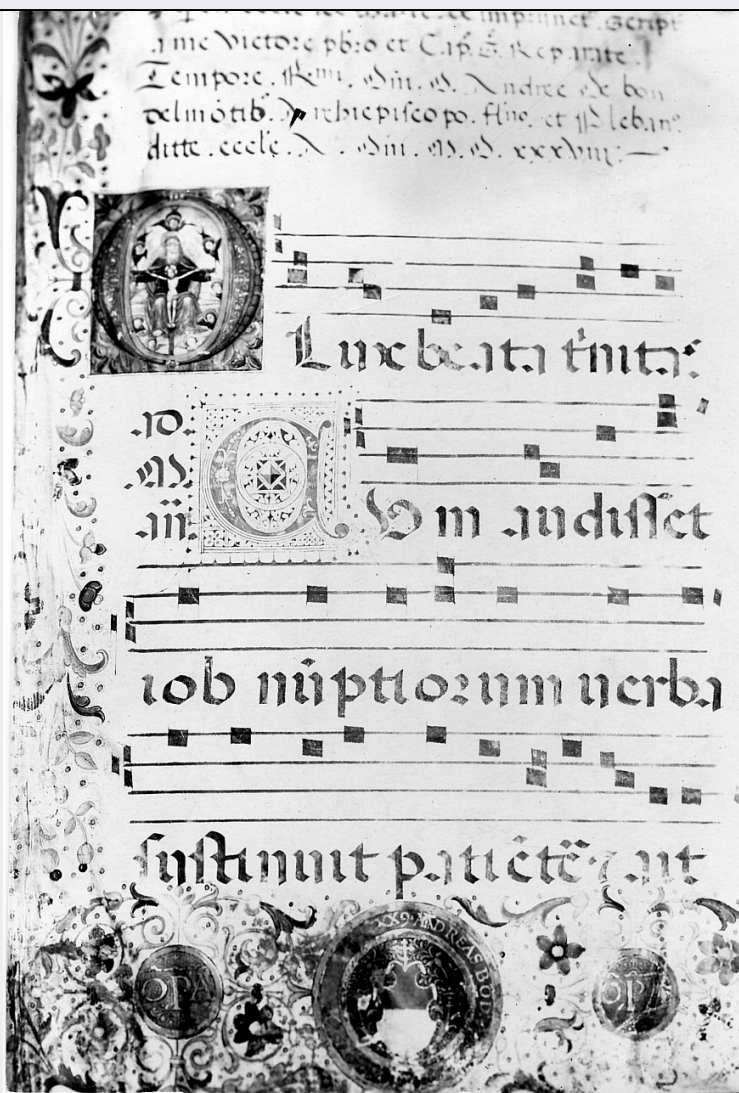 eccle et imprimet. Script
a me Victore pbro et Cap. S. Reparate.
Tempore. Rmi. Dni. D. Andree de bon
delmotib. Archiepiscopo. flno. et Plebano
ditte. eccle. A. Dni. M. D. xxxviii.
O Lux beata trinitas.
ad. M. an. CUm audisset
iob nuptiorum uerba
sustinuit patiete. ait
XX9. ANDREAS. BOD
OPA OPA